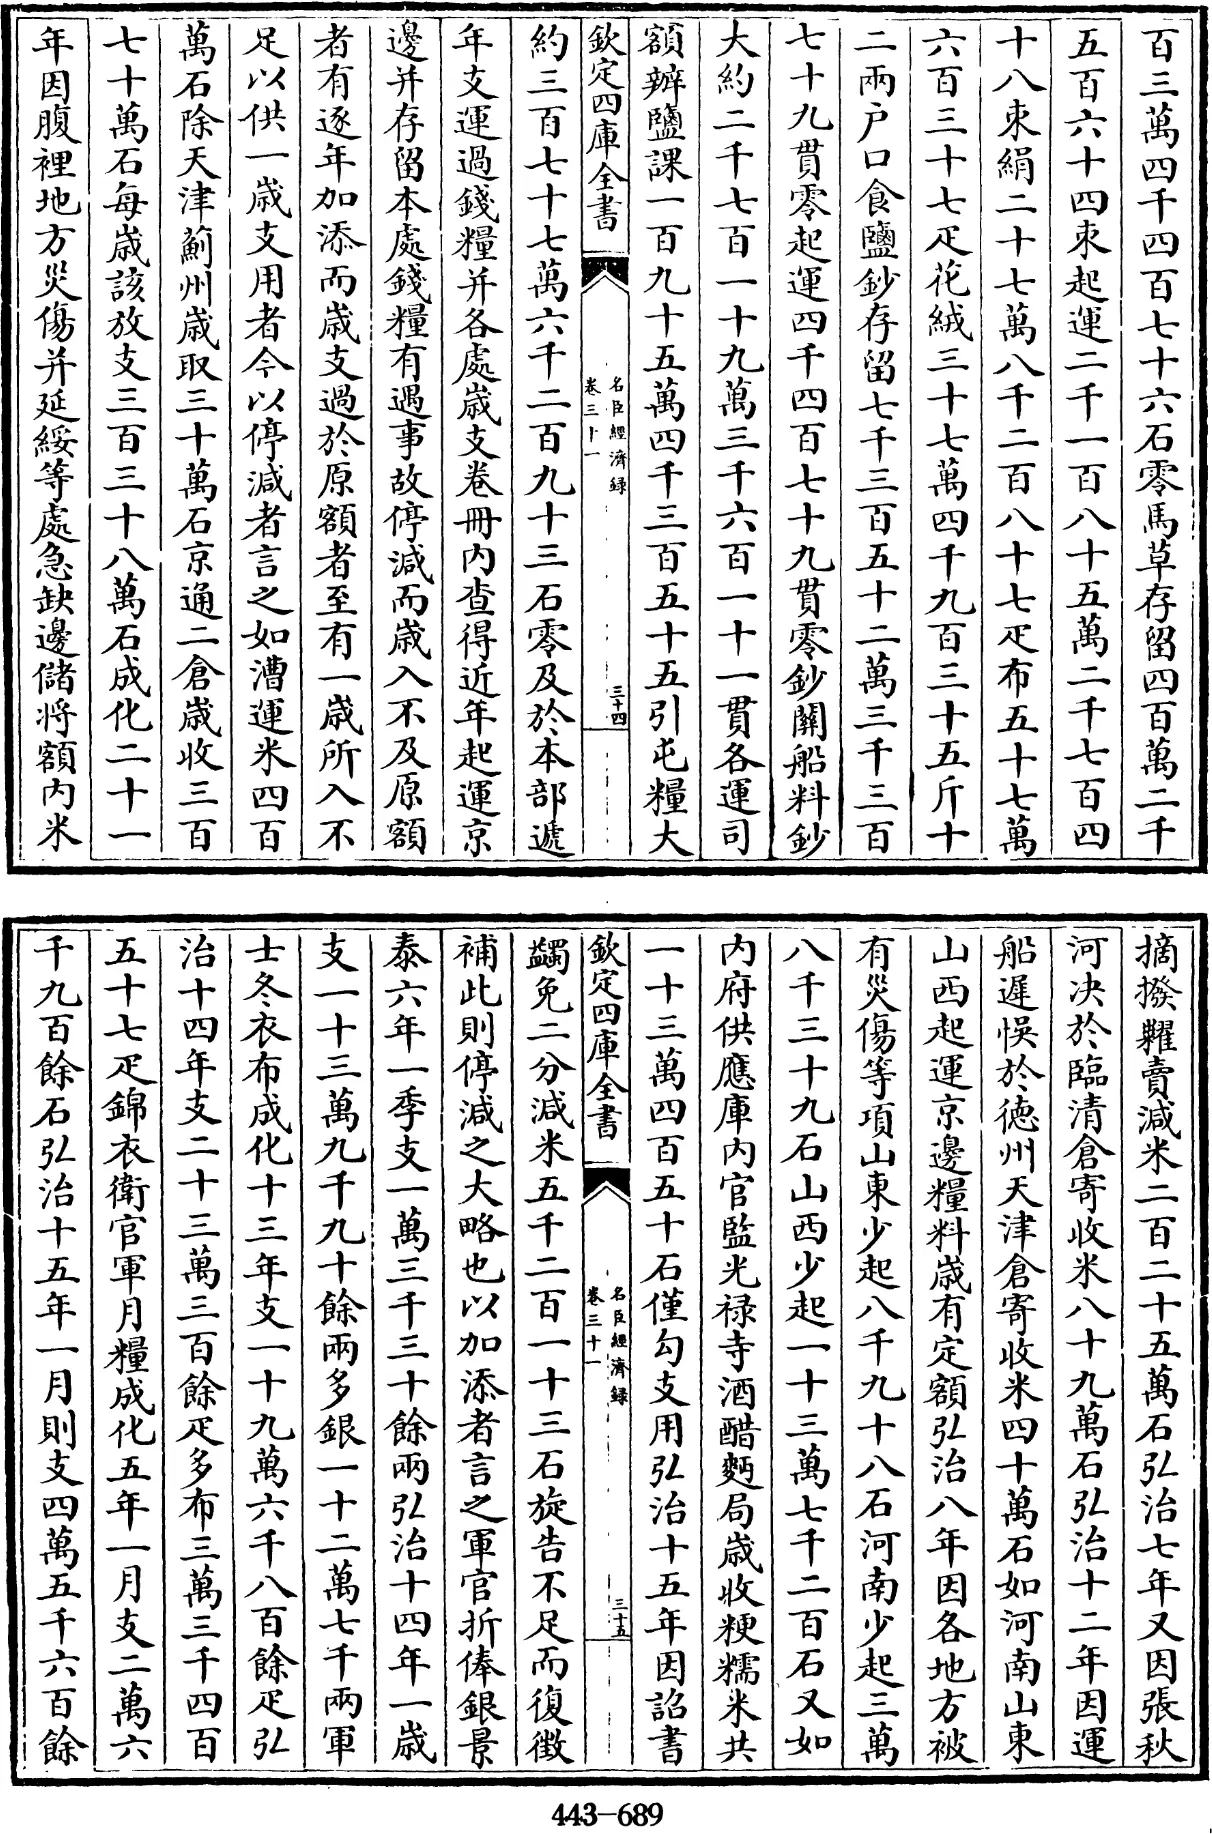 百三萬四千四百七十六石零馬草存留四百萬二千
五百六十四束起運二千一百八十五萬二千七百四
十八束絹二十七萬八千二百八十七疋布五十七萬
六百三十七疋花絨三十七萬四千九百三十五斤十
二兩户口食鹽鈔存留七千三百五十二萬三千三百
七十九貫零起運四千四百七十九貫零鈔關船料鈔
大約二千七百一十九萬三千六百一十一貫各運司
額辦鹽課一百九十五萬四千三百五十五引屯糧大
欽定四庫全書
名臣經濟録
卷三十一
三十四
約三百七十七萬六千二百九十三石零及於本部遞
年支運過錢糧并各處歳支卷冊内查得近年起運京
邊并存留本處錢糧有遇事故停減而歳入不及原額
者有逐年加添而歳支過於原額者至有一歳所入不
足以供一歳支用者今以停減者言之如漕運米四百
萬石除天津薊州歳取三十萬石京通二倉歳收三百
七十萬石每歳該放支三百三十八萬石成化二十一
年因腹裡地方災傷并延綏等處急缺邊儲將額内米
摘撥糶賣減米二百二十五萬石弘治七年又因張秋
河決於臨清倉寄收米八十九萬石弘治十二年因運
船遲悞於徳州天津倉寄收米四十萬石如河南山東
山西起運京邊糧料歳有定額弘治八年因各地方被
有災傷等項山東少起八千九十八石河南少起三萬
八千三十九石山西少起一十三萬七千二百石又如
内府供應庫内官監光禄寺酒醋麪局歳收粳糯米共
一十三萬四百五十石僅勾支用弘治十五年因詔書
欽定四庫全書
名臣經濟録
卷三十一
三十五
蠲免二分減米五千二百一十三石旋告不足而復徵
補此則停減之大略也以加添者言之軍官折俸銀景
泰六年一季支一萬三千三十餘兩弘治十四年一歳
支一十三萬九千九十餘兩多銀一十二萬七千兩軍
士冬衣布成化十三年支一十九萬六千八百餘疋弘
治十四年支二十三萬三百餘疋多布三萬三千四百
五十七疋錦衣衛官軍月糧成化五年一月支二萬六
千九百餘石弘治十五年一月則支四萬五千六百餘
443-689